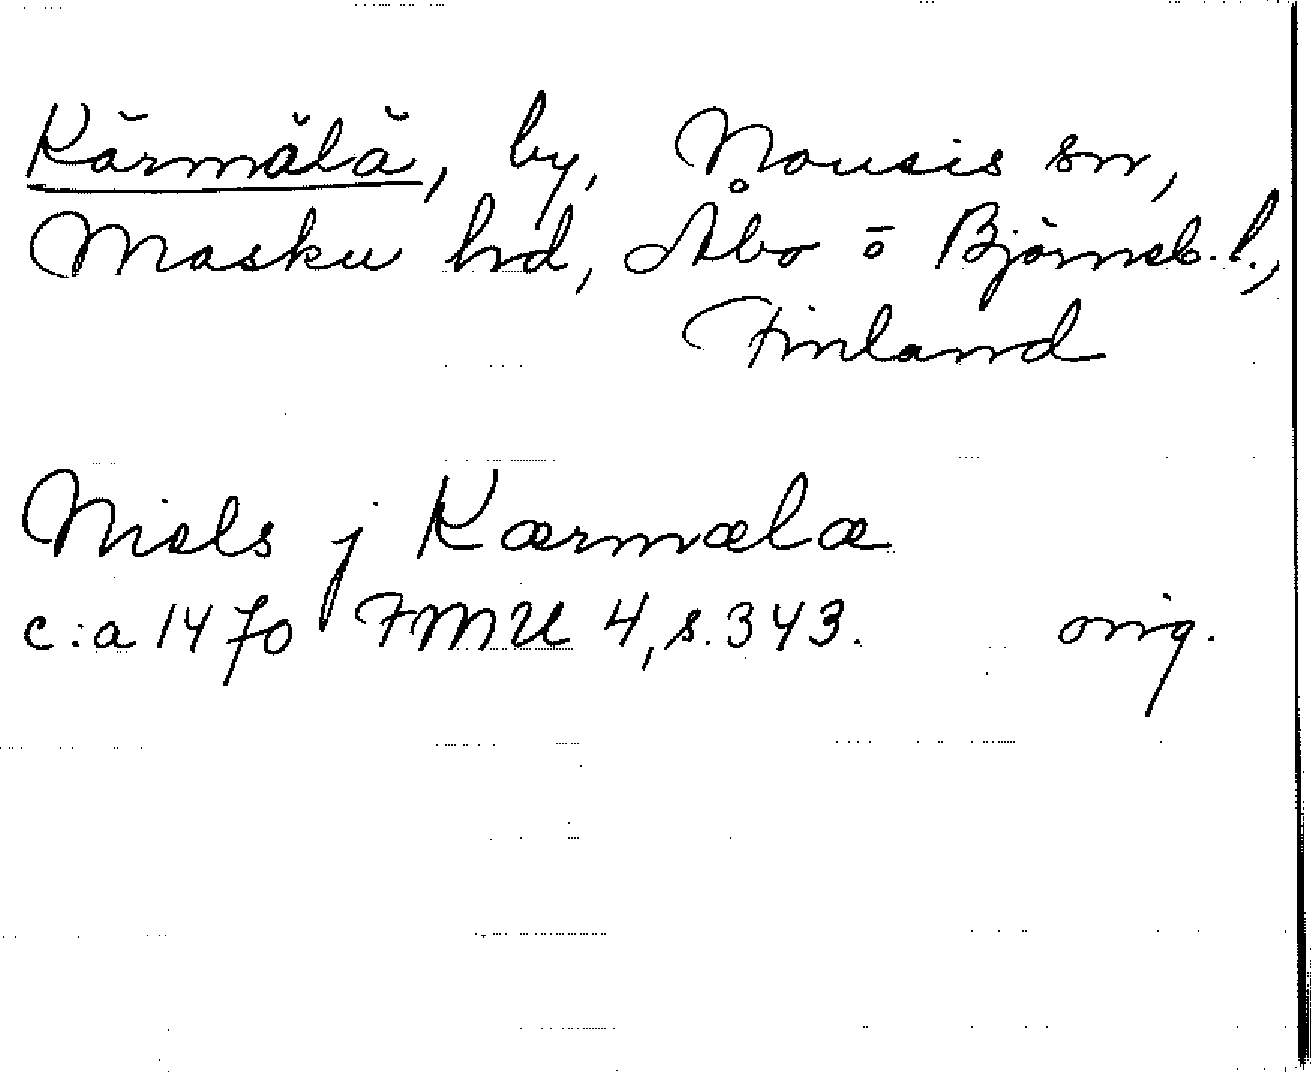 Kärmälä, by, Nousis sn,
Masku hd, Åbo ō Björneb. l.,
Finland
Niels j Kærmælæ
c:a 1470 FMU 4, s. 343. orig.